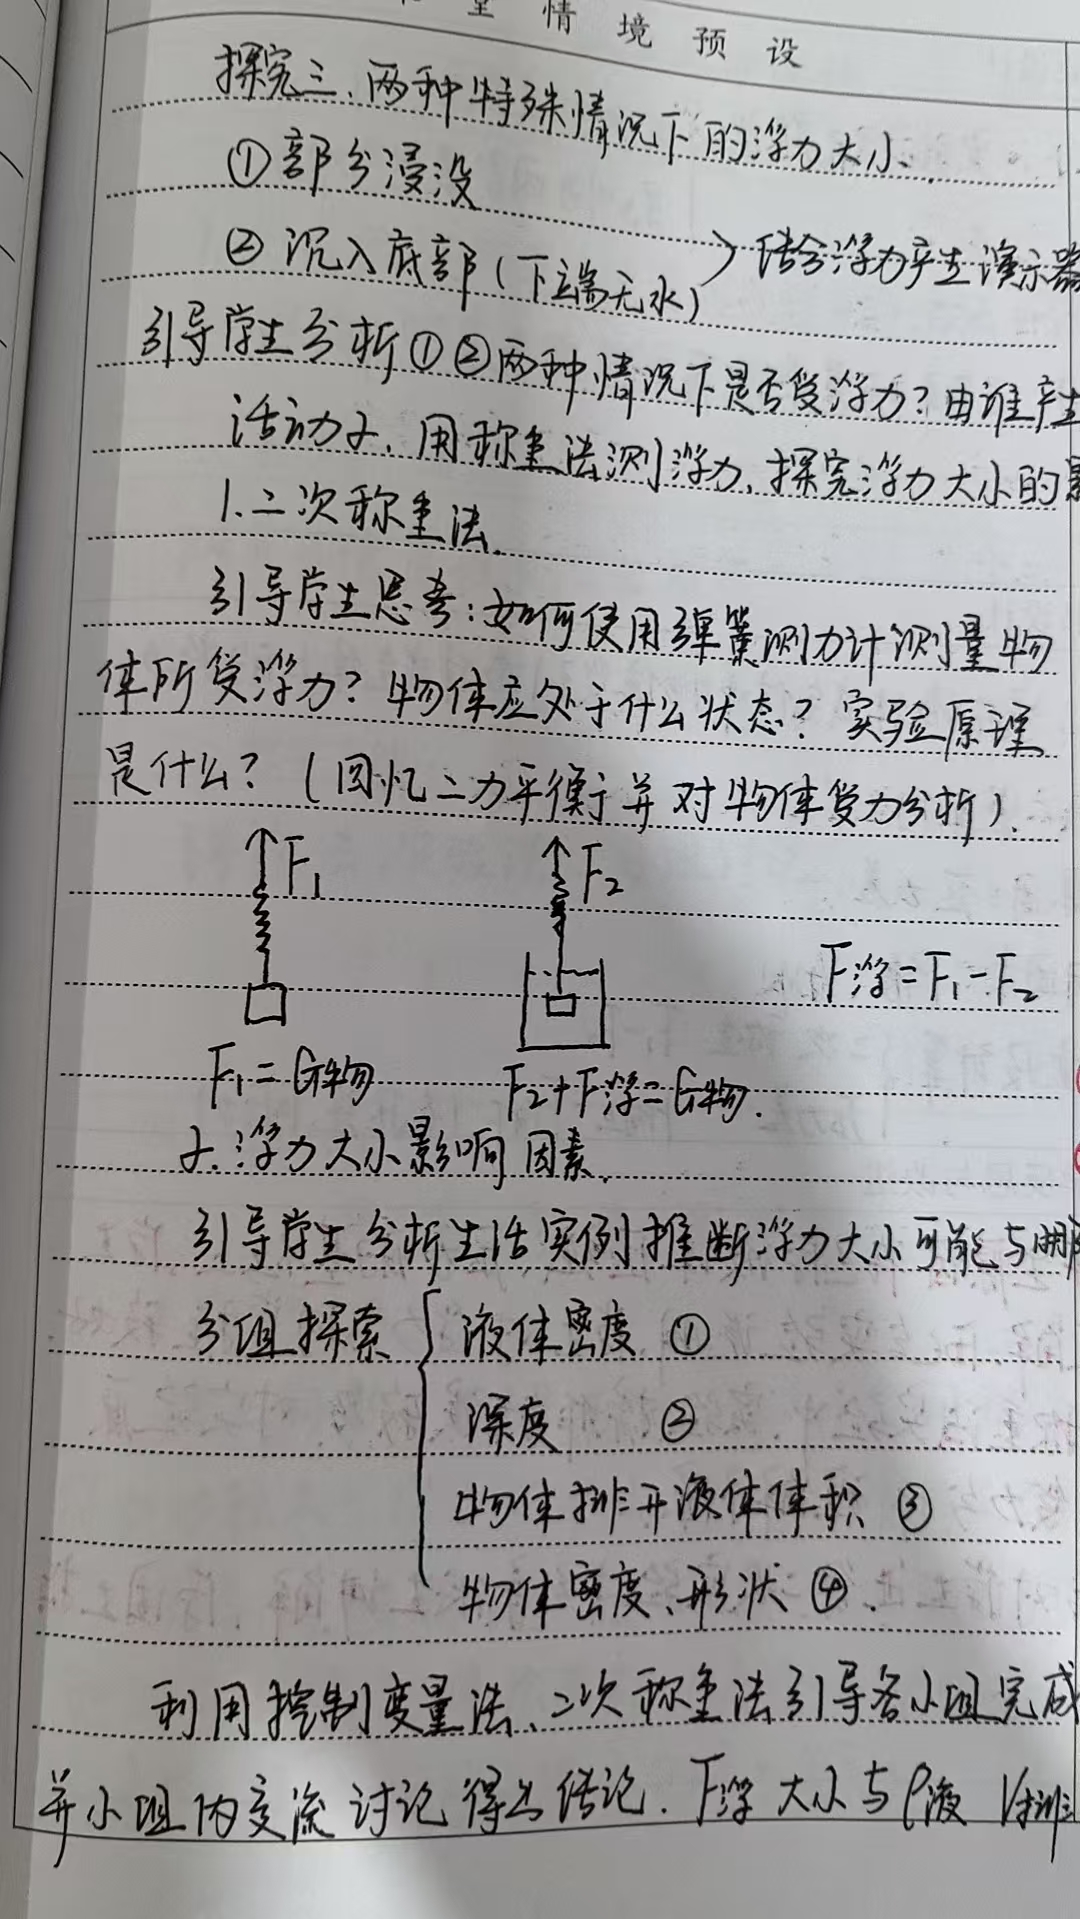 堂情境预设
探究三、两种特殊情况下的浮力大小.
①部分浸没
②沉入底部(下端无水) 〉结合浮力产生演示器
引导学生分析①②两种情况下是否受浮力?由谁产生
活动2、用称重法测浮力,探究浮力大小的影
1.二次称重法.
引导学生思考:如何使用弹簧测力计测量物
体所受浮力?物体应处于什么状态?实验原理
是什么?(回忆二力平衡并对物体受力分析).
F₁ F₂
F浮=F₁-F₂
F₁=G物 F₂+F浮=G物.
2.浮力大小影响因素.
引导学生分析生活实例推断浮力大小可能与哪
分组探索 { 液体密度 ①
深度 ②
物体排开液体体积 ③
物体密度、形状 ④.
利用控制变量法、二次称重法引导各小组完成
并小组内交流讨论得出结论.F浮大小与ρ液 V排